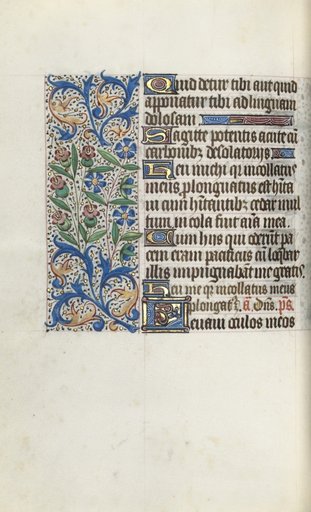 Quid detur tibi aut quid
apponatur tibi ad linguam
dolosam
Sagitte potentis acute cū
carbonibꝫ desolatoriis
Heu michi qꝛ incolatus
meus prolongatus est hīta
ui cum hītantibꝫ cedar mul
tum incola fuit aīa mea
Cum hiis qui oderūt pa
cem eram pacificus cū loqbar
illis impugnabāt me gratis.
Heu me qꝛ incolatus meus
plongať ē. ā. Dn̄s. ps.
Leuaui oculos meos